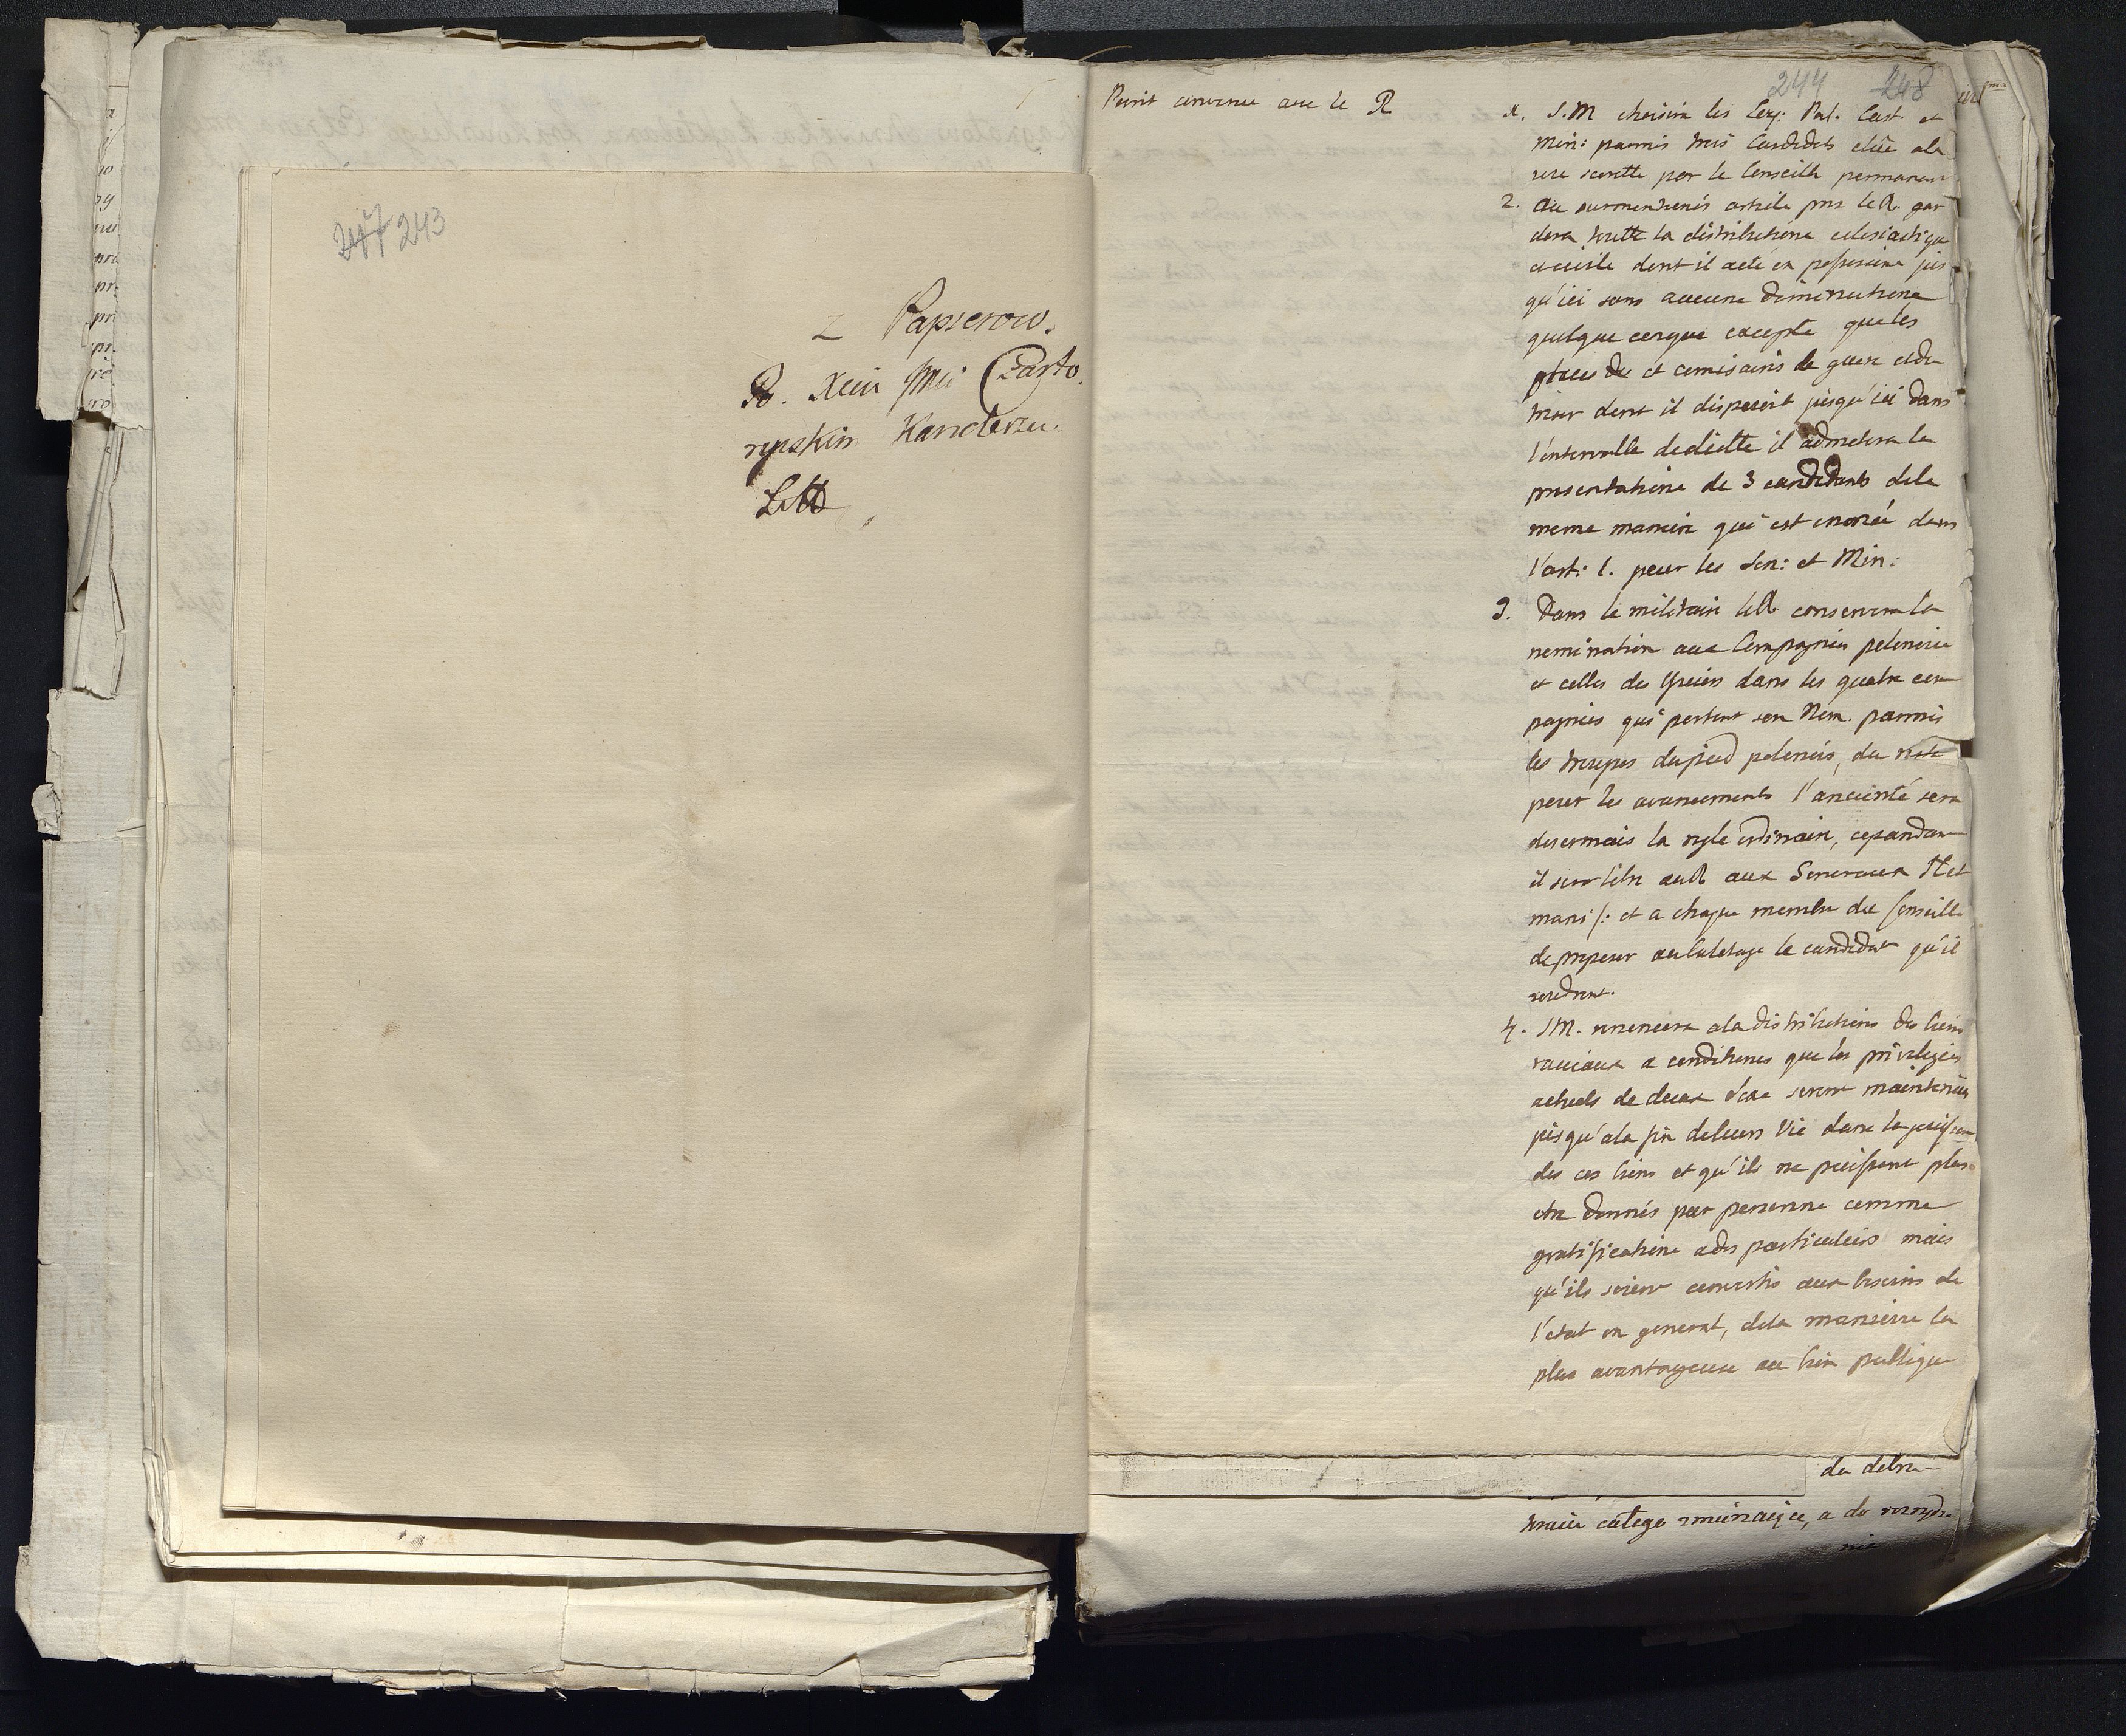 247 243
z Papierow.
Po. Xciu Jmci Czarto.
ryskim Kanclerzu.
Litt
244 248
Point convenu avec le R
1. S. M choisira les Seny: Pal. Cast. et
Min: parmis trois Candidats elûe a la
voix secrette par le Conseille permanant
2. Au surmentionés article pres le R. gar
dera toutte la distributione eclesiastique
et civile dont il aete en possessione jus
qu'ici sans aucune diminutione
quelque conque excepte que les
places de et comisairs de guere et du
tresor dont il disposoit jusqu'ici dans
l'intervalle de diette il admetera la
presentatione de 3 candidats dela
meme maniere qui est enoncée dans
l'art: 1. pour les Sen: et Min:
3. Dans le militair le R conservera la
nomination aux Compagnies polonoise
et celles des officiers dans les quatre com
pagnies qui portent son Nom. parmis
les troupes du pied polonois, du reste
pour les avancements l'ancienté sera
desormais la regle ordinaire, cepandant
il sera libre au R aux Generaux Het
mans /: et a chaque membre du Conseille
de proposer au balotage le candidat qu'il
voudront.
4. S M. renoncera a la distributions des biens
royaux a conditiones que les privilegiés
actuels de deux état seront maintenus
jusqu'a la fin de leurs Vie dans la jouissance
des ces biens et qu'ils ne puissent plus
etre donnés par personne comme
gratificatione a des particuliers mais
qu'ils soient convertis aux besoins de
l'etat en general, dela manierre la
plus avantageuse au bien publique
da dobra
traiu całego zmierzaiące, a do
nie